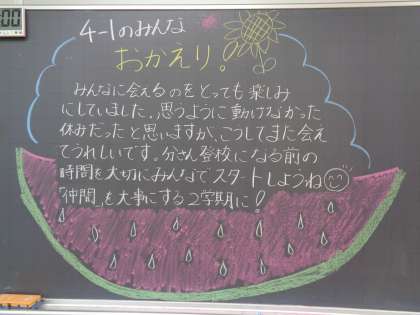 :00
4-1のみんな
おかえり!
みんなに会えるのをとっても楽しみ
にしていました。思うように動けなかった
休みだったと思いますが、こうしてまた会え
てうれしいです。分さん登校になる前の
時間を大切にみんなでスタートしようね
「仲間」を大事にする2学期に!